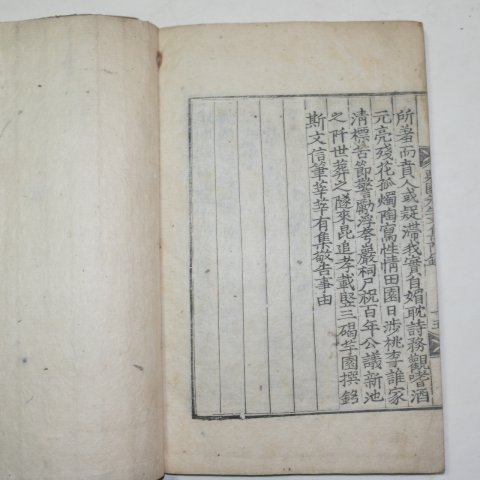 所羞而貴人或疑滯我實自媚耽詩務觀嗜酒
元亮殘花孤燭陶寫性情田園日涉桃李誰家
清標苦節警勵浮夸巖祠尸祝百年公議新池
之阡世葬之隧來昆追孝載竪三碣芋園撰銘
斯文信筆莘莘有集敬告事由